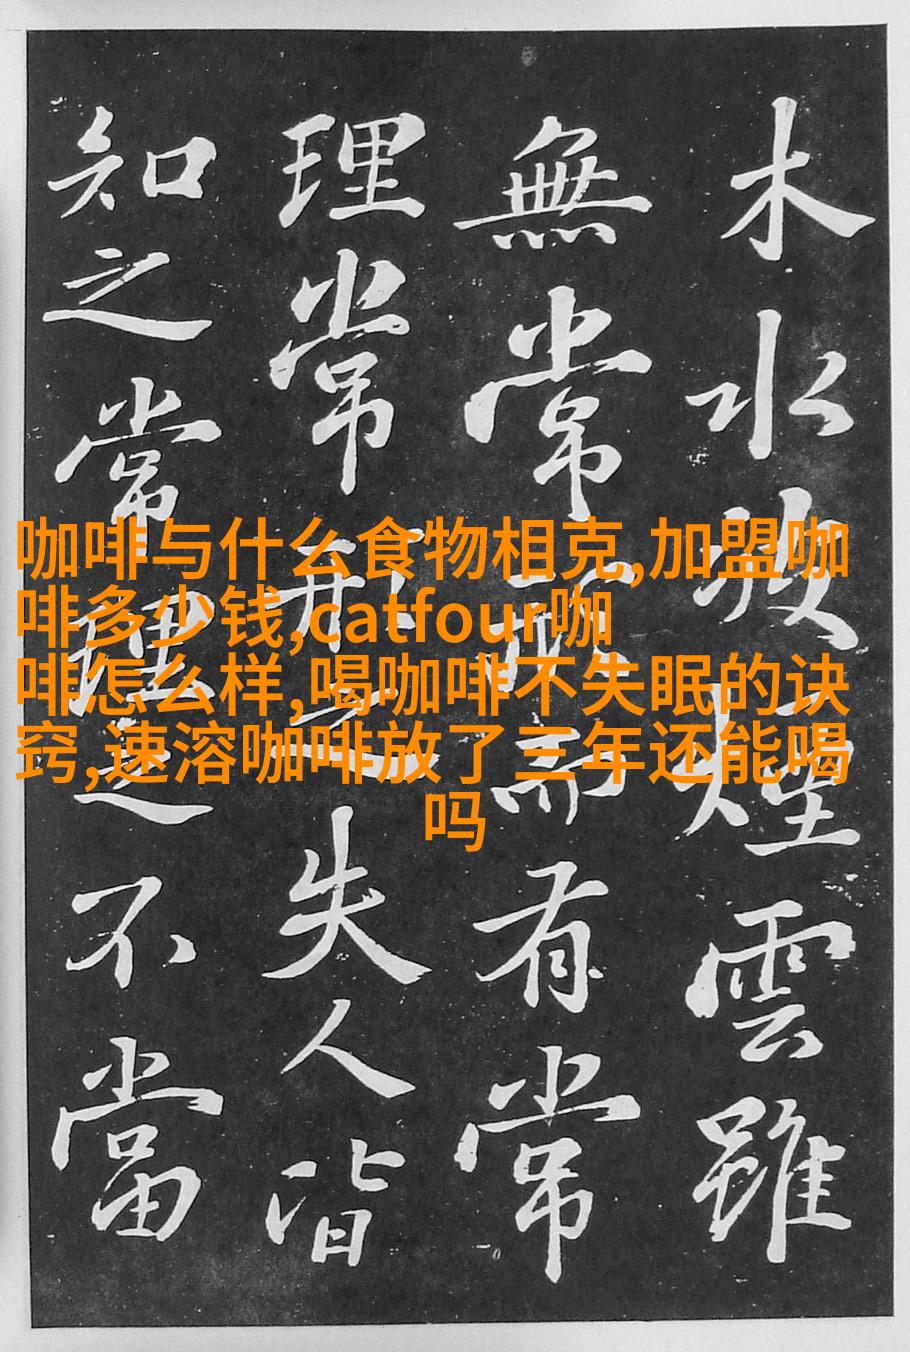 咖啡与什么食物相克,加盟咖
啡多少钱,catfour咖
啡怎么样,喝咖啡不失眠的诀
窍,速溶咖啡放了三年还能喝
吗
木水波煙雲雖
無常形而有常
理常形之失人皆
知之常理之不當